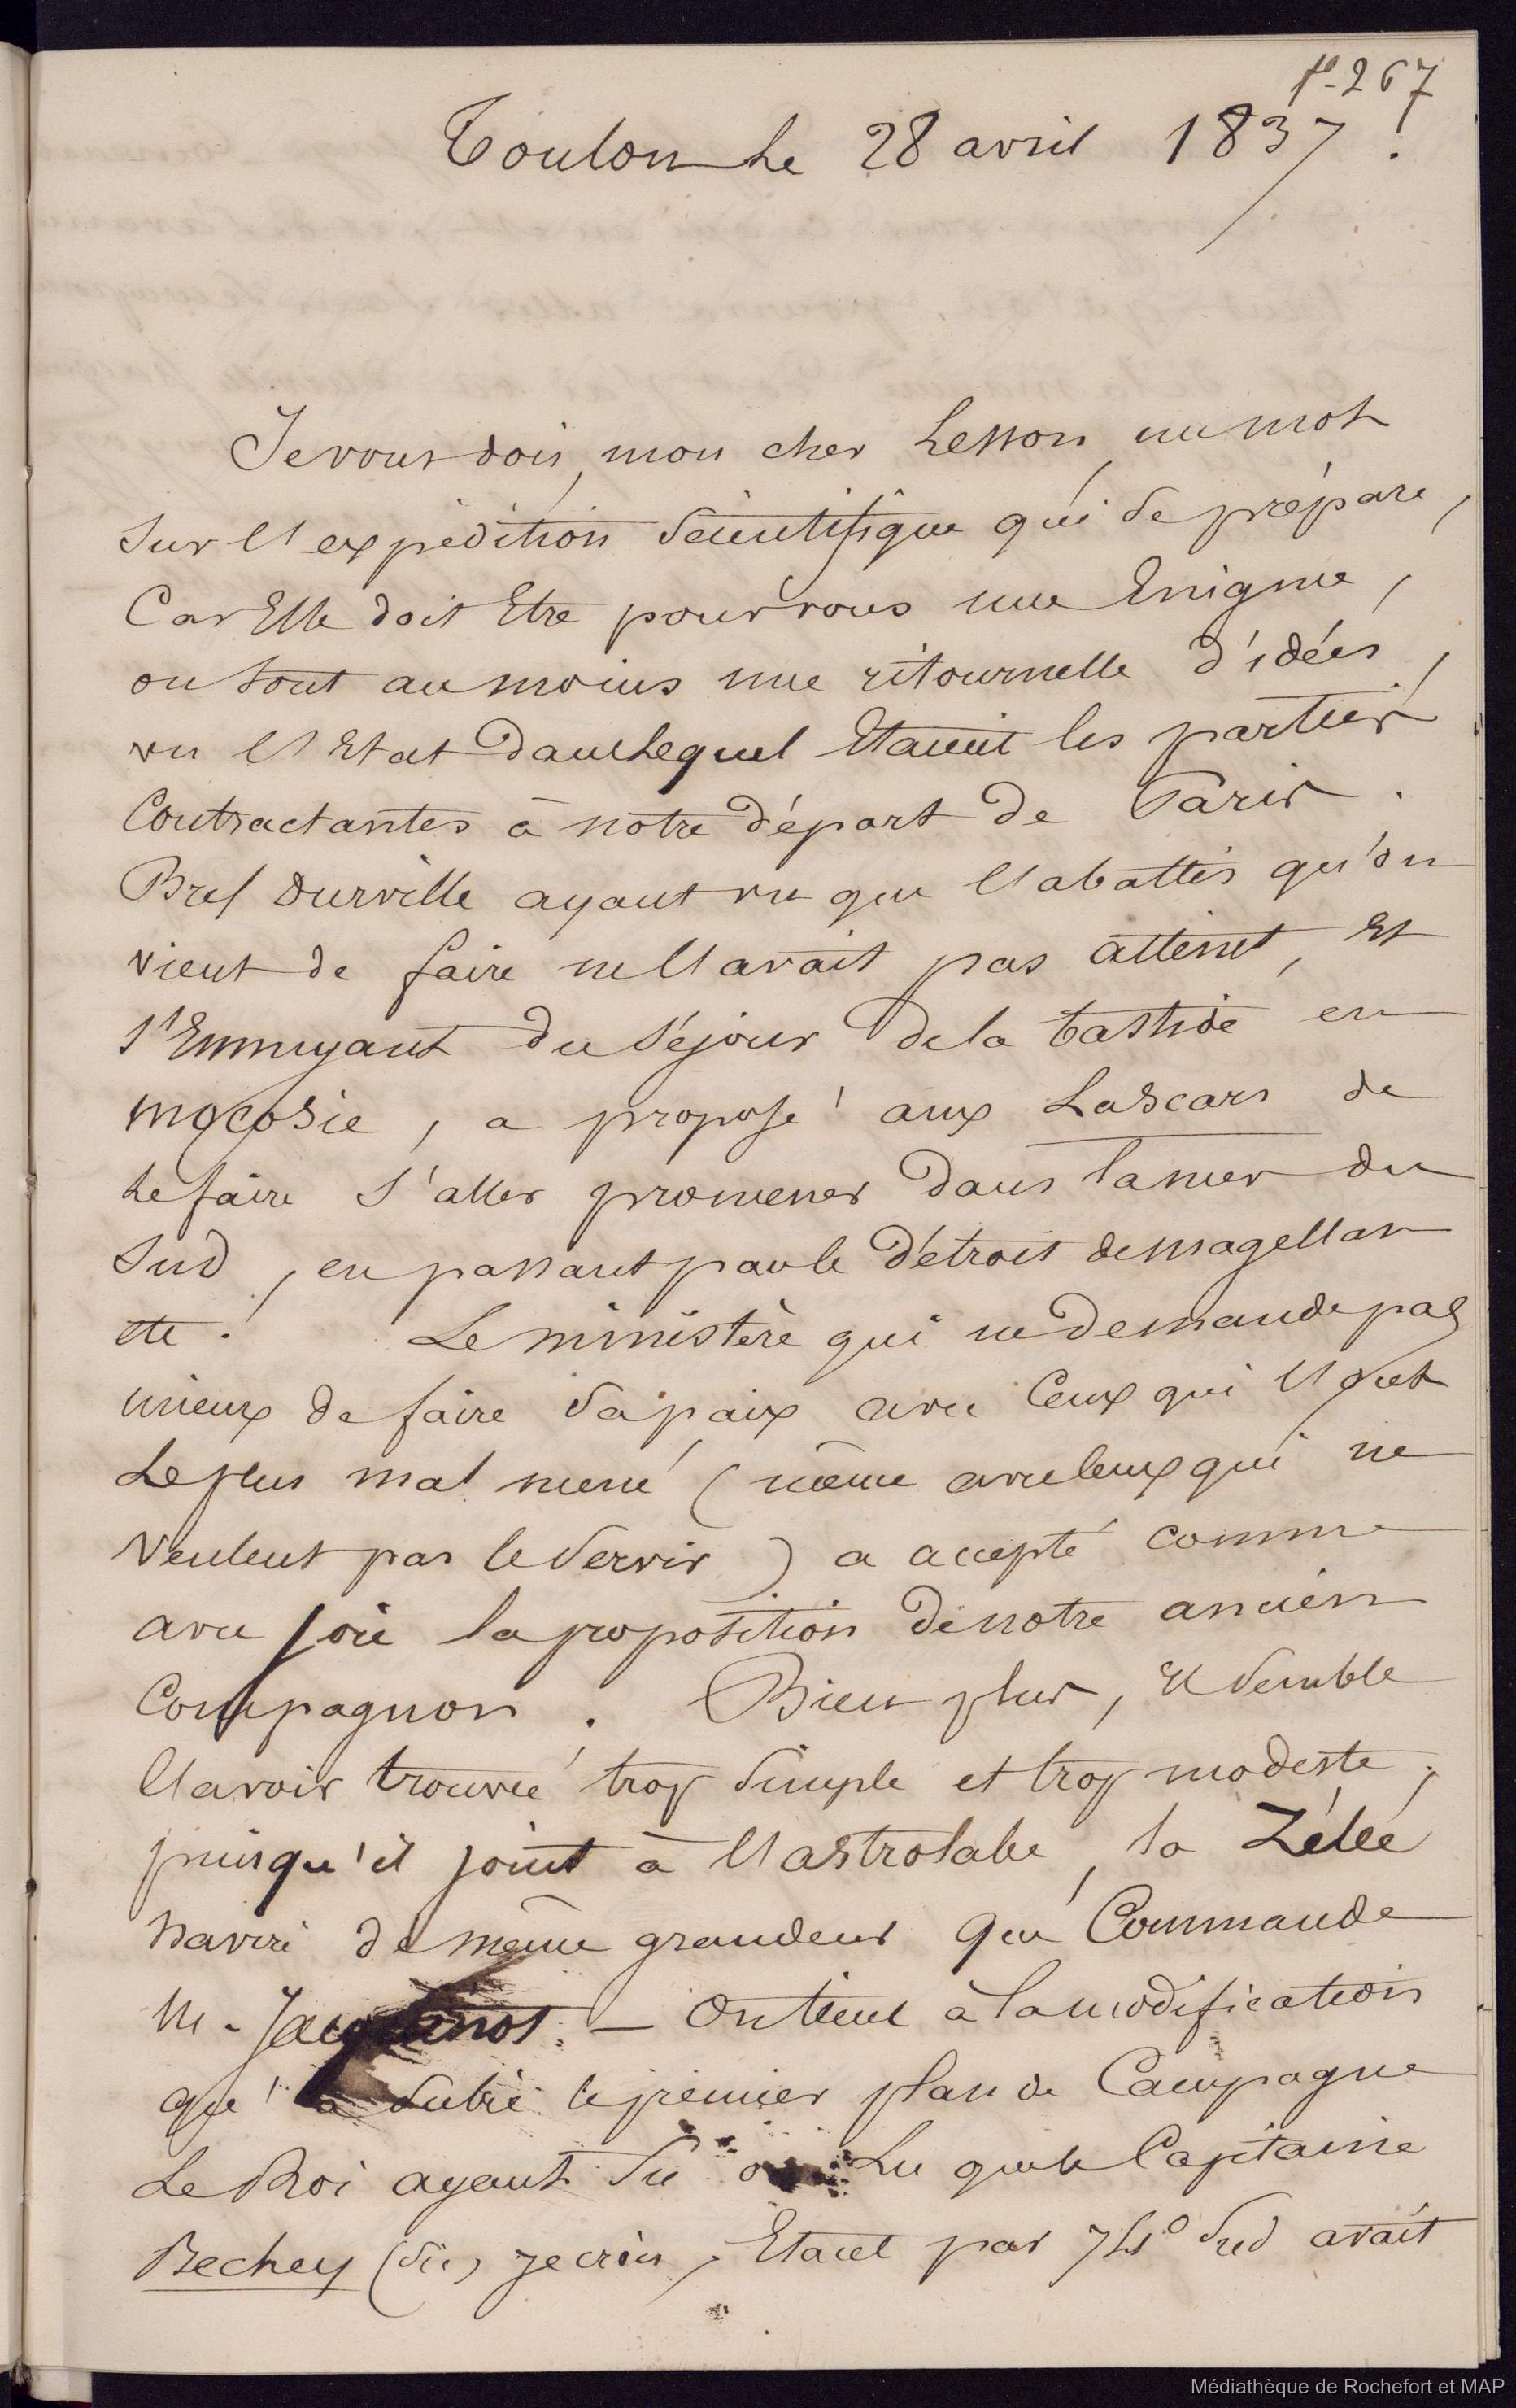 fo. 267
Toulon le 28 avril 1837.
Je vous dois, mon cher Lesson, un mot
sur l'expédition scientifique qui se prépare,
Car Elle doit Etre pour vous une Enigme,
ou tout au moins une ritournelle d'idées,
vu l'Etat dans lequel Etaient les parties
Contractantes à notre départ de Paris.
Bref Durville ayant vu que l'abattis qu'on
vient de faire ne l'avait pas atteint, Et
s'Ennuyant du séjour de la bastide en
mocosie, a proposé aux Lascars de
le faire s'aller promener dans la mer du
Sud, en passant par le Détroit de magellan
etc. Le ministère qui ne demande pas
mieux de faire sa paix avec Ceux qui l'ont
Le plus mal mené (même avec ceux qui ne
veulent pas le servir) a accepté comme
avec joie la proposition de notre ancien
Compagnon. Bien plus, Il semble
l'avoir trouvée trop simple et trop modeste,
puisqu'il joint à l'astrolabe, la Zélée
navire de même grandeur que Commande
M. Jacquinot. — On tient à la modification
qu'a subie le premier plan de Campagne
Le Roi ayant su ou Lu que le Capitaine
Bechey (sic) je crois, Etant par 74° Sud avait
Médiathèque de Rochefort et MAP